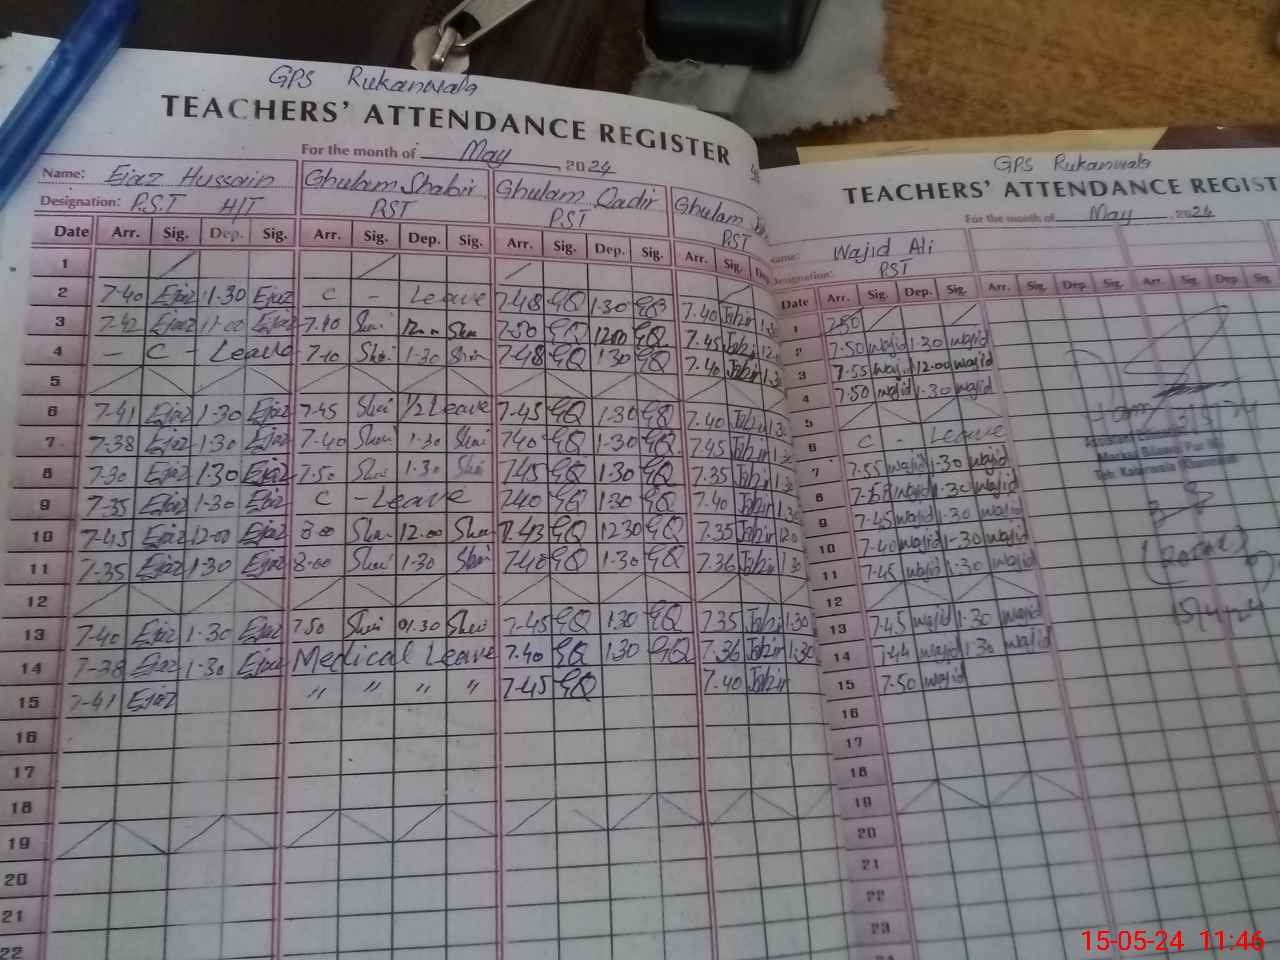 GPS Rukanwala
TEACHERS' ATTENDANCE REGISTER
For the month of May 2024
Name: Ejaz Hussain Ghulam Shabir Ghulam Qadir Ghulam
Designation: P.S.T H/T PST PST PST
Date Arr. Sig. Dep. Sig. Arr. Sig. Dep. Sig. Arr. Sig. Dep. Sig. Arr. Sig.
1
2 7-40 Ejaz 1-30 Ejaz C - Leave 7-48 GQ 1-30 GQ 7.40 Jabir
3 7-42 Ejaz 11-00 Ejaz 7-40 Sha 12.00 Sha 7-50 GQ 1200 GQ 7.45 Jabir
4 - C - Leave 7-40 Sha 1-30 Sha 7-48 GQ 130 GQ 7.40 Jabir
5
6 7-41 Ejaz 1-30 Ejaz 7-45 Sha 1/2 Leave 7-45 GQ 1-30 GQ 7.40 Jabir 1.30
7 7-38 Ejaz 1-30 Ejaz 7-40 Sha 1-30 Sha 740 GQ 1-30 GQ 7.45 Jabir 1.30
8 7-30 Ejaz 1-30 Ejaz 7-50 Sha 1-30 Sha 745 GQ 1-30 GQ 7.35 Jabir 1.30
9 7-35 Ejaz 1-30 Ejaz C - Leave 740 GQ 1-30 GQ 7.40 Jabir 1.30
10 7-45 Ejaz 12-00 Ejaz 8-00 Sha 12.00 Sha 7.43 GQ 1230 GQ 7.35 Jabir
11 7-35 Ejaz 1-30 Ejaz 8-00 Sha 1-30 Sha 7-40 GQ 1-30 GQ 7.36 Jabir 1 30
12
13 7-40 Ejaz 1-30 Ejaz 7.50 Sha 01.30 Sha 7-45 GQ 130 GQ 7.35 Jabir 1:30
14 7-38 Ejaz 1-30 Ejaz Medical Leave 7.40 GQ 130 GQ 7.36 Jabir 1:30
15 7-41 Ejaz " " " " 7-45 GQ 7.40 Jabir
16
17
18
19
20
21
22
GPS Rukanwala
TEACHERS' ATTENDANCE REGIST
For the month of May 2024
Name: Wajid Ali
Designation: PST
Date Arr. Sig. Dep. Sig. Arr. Sig. Dep Sig. Arr. Sig Dep Sig.
1 7-50
2 7-50 wajid 1-30 wajid
3 7-55 wajid 12.00 wajid
4 7-50 wajid 1-30 wajid
5
6 C - Leave
7 7-55 wajid 1-30 wajid
8 wajid 1-30 wajid
9 7-45 wajid 1-30 wajid
10 7-40 wajid 1-30 wajid
11 7-45 wajid 1-30 wajid
12
13 7-45 wajid 1-30 wajid
14 7-44 wajid 1-30 wajid
15 7-50 wajid
16
17
18
19
20
21
22
23
15-05-24 11:46